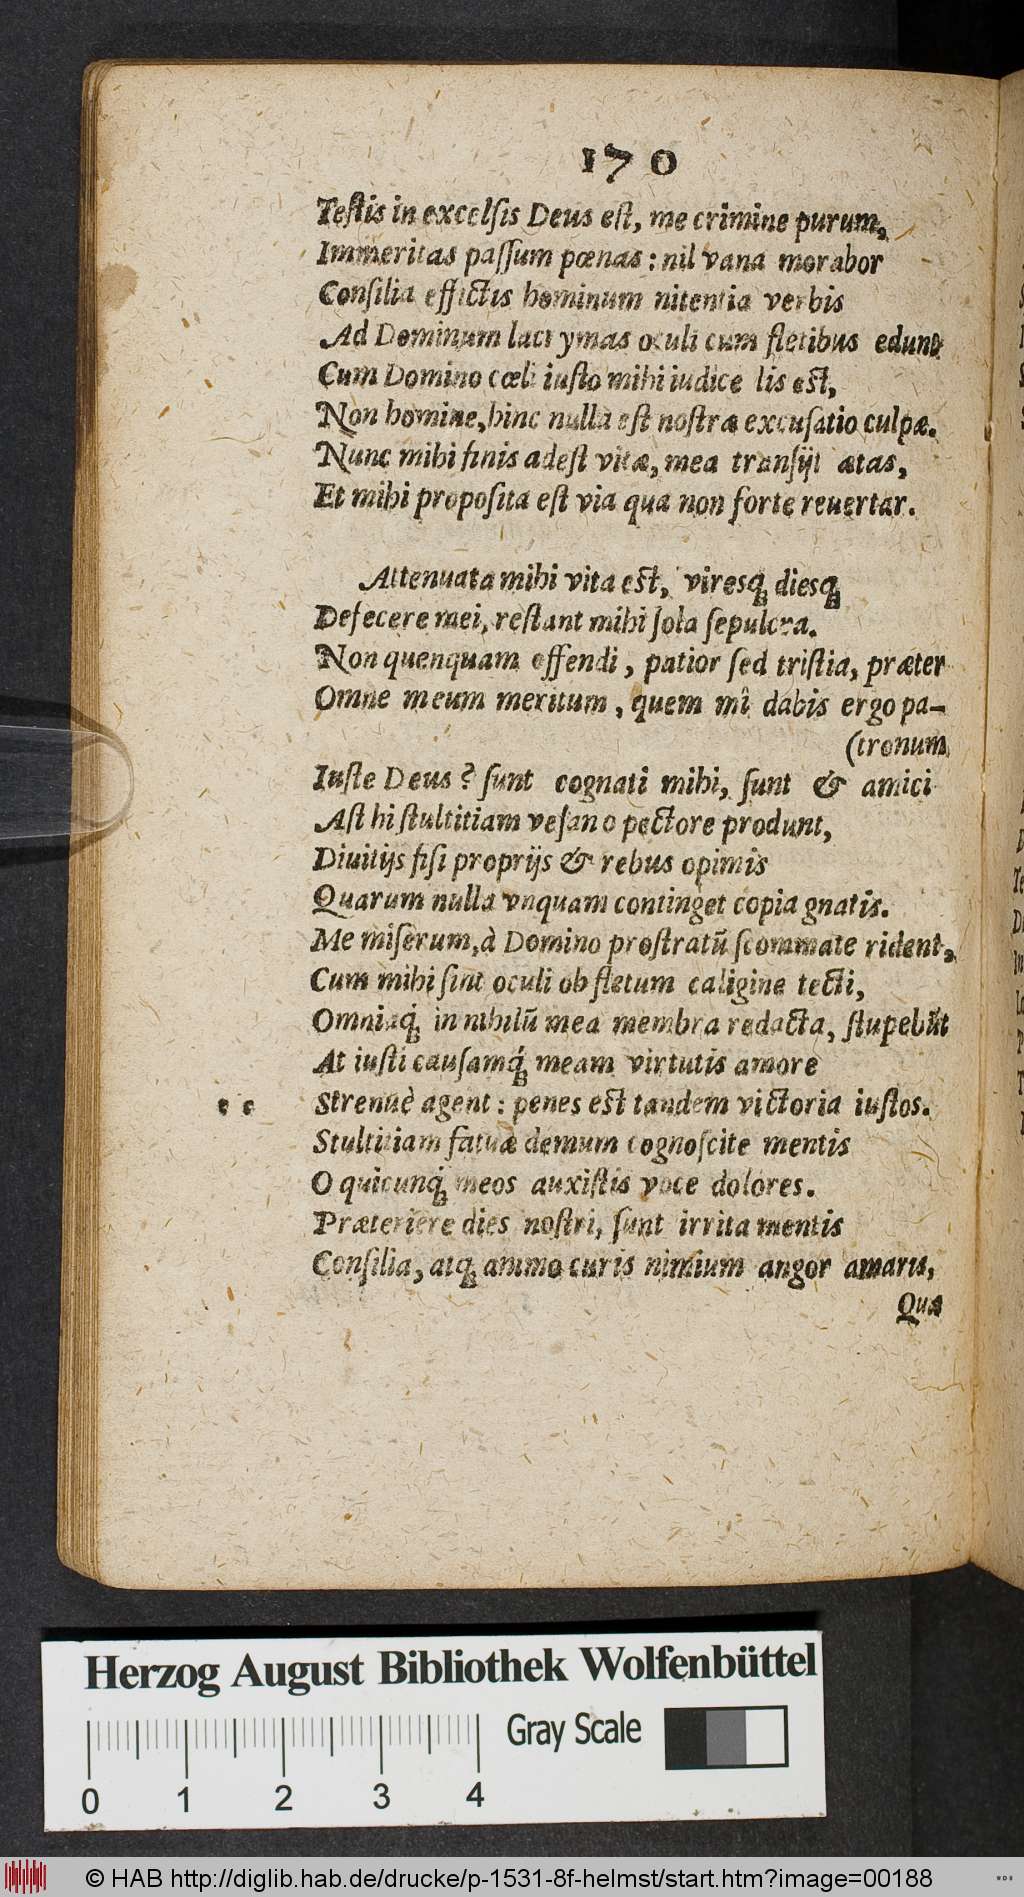 170
Teſtis in excelſis Deus eſt, me crimine purum,
Immeritas paſſum pœnas: nil vana morabor
Conſilia effictis hominum nitentia verbis
Ad Dominum lacrymas oculi cum fletibus edunt
Cum Domino cœli iuſto mihi iudice lis eſt,
Non homine, hinc nulla eſt noſtræ excuſatio culpæ.
Nunc mihi finis adeſt vitæ, mea tranſijt ætas,
Et mihi propoſita eſt via qua non forte reuertar.
Attenuata mihi vita eſt, viresq́; diesq́;
Defecere mei, reſtant mihi ſola ſepulcra.
Non quenquam offendi, patior ſed triſtia, præter
Omne meum meritum, quem mî dabis ergo pa-
(tronum
Iuſte Deus? ſunt cognati mihi, ſunt & amici
Aſt hi ſtultitiam veſano pectore produnt,
Diuitijs fiſi proprijs & rebus opimis
Quarum nulla vnquam continget copia gnatis.
Me miſerum, à Domino proſtratũ ſcommate rident,
Cum mihi ſint oculi ob fletum caligine tecti,
Omniaq́; in nihilũ mea membra redacta, ſtupebũt
At iuſti cauſamq́; meam virtutis amore
Strenuè agent: penes eſt tandem victoria iuſtos.
Stultitiam fatuæ demum cognoſcite mentis
O quicunq́; meos auxiſtis voce dolores.
Præteriere dies noſtri, ſunt irrita mentis
Conſilia, atq́; animo curis nimium angor amaris,
Qua
Herzog August Bibliothek Wolfenbüttel
Gray Scale
0 1 2 3 4
© HAB http://diglib.hab.de/drucke/p-1531-8f-helmst/start.htm?image=00188